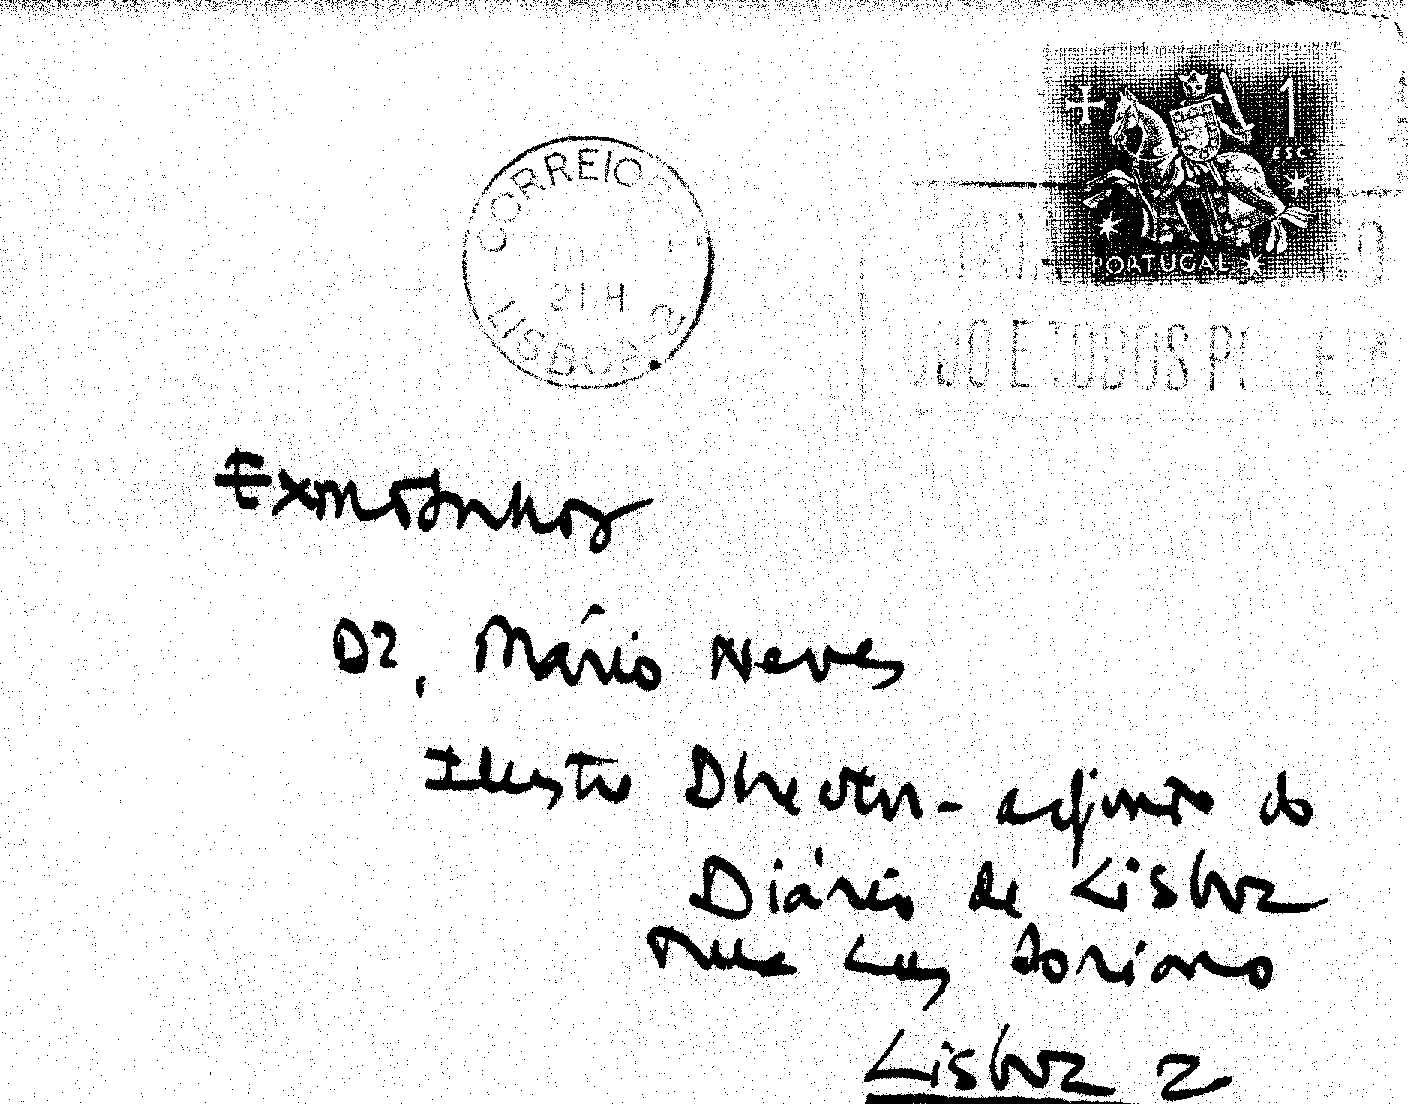 1
ESC.
PORTUGAL
CORREIOS
21 4
LISBOA
E TODOS
Exmo Senhor
Dr. Mário Neves
Ilustre Director-adjunto do
Diário de Lisboa
Rua Luz Soriano
Lisboa 2